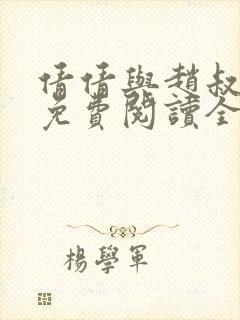 倩倩與趙叔
免費閱讀全
楊學軍